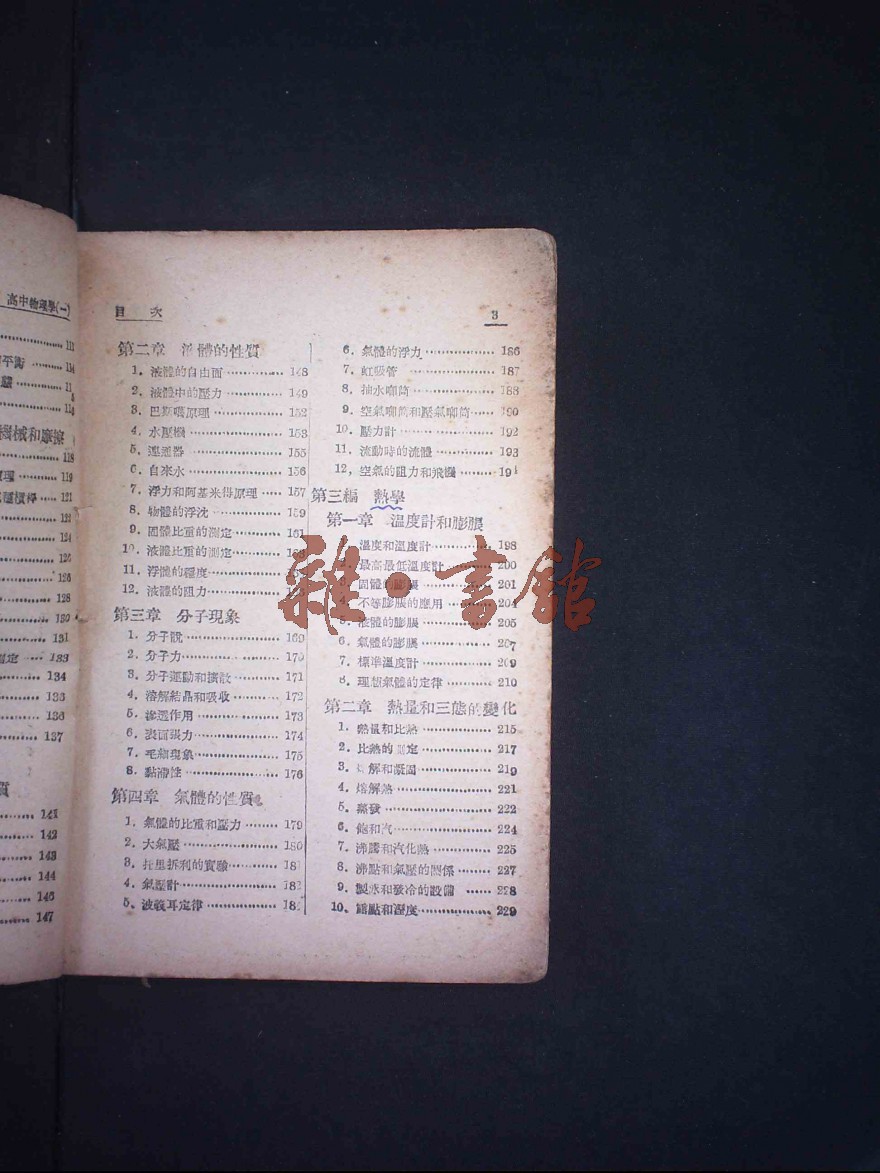 高中物理學(一)
111
平衡 114
機械和摩擦
118
119
121
123
124
125
126
128
130
131
定 133
134
135
136
137
質
141
142
143
144
145
147
目 次
3
第二章 液體的性質
1. 液體的自由面 148
2. 液體中的壓力 149
3. 巴斯噶原理 152
4. 水壓機 153
5. 連通器 155
6. 自來水 156
7. 浮力和阿基米得原理 157
8. 物體的浮沈 159
9. 固體比重的測定
10. 液體比重的測定
11. 浮體的穩度
12. 液體的阻力
第三章 分子現象
1. 分子說 169
2. 分子力 170
3. 分子運動和擴散 171
4. 溶解結晶和吸收 172
5. 滲透作用 173
6. 表面張力 174
7. 毛細現象 175
8. 黏滯性 176
第四章 氣體的性質
1. 氣體的比重和壓力 179
2. 大氣壓 180
3. 托里拆利的實驗
4. 氣壓計
5. 波義耳定律
6. 氣體的浮力 186
7. 虹吸管 187
8. 抽水唧筒 188
9. 空氣唧筒和壓氣唧筒 190
10. 壓力計 192
11. 流動時的流體 193
12. 空氣的阻力和飛機
第三編 熱學
第一章 溫度計和膨脹
溫度和溫度計 198
最高最低溫度計 200
固體的膨脹 201
4. 不等膨脹的應用 204
5. 液體的膨脹 205
6. 氣體的膨脹 207
7. 標準溫度計 209
8. 理想氣體的定律 210
第二章 熱量和三態的變化
1. 熱量和比熱 215
2. 比熱的測定 217
3. 熔解和凝固 219
4. 熔解熱 221
5. 蒸發 222
6. 飽和汽 224
7. 沸騰和汽化熱 225
8. 沸點和氣壓的關係 227
9. 製冰和發冷的設備 228
10. 露點和溼度 229
雜·書館